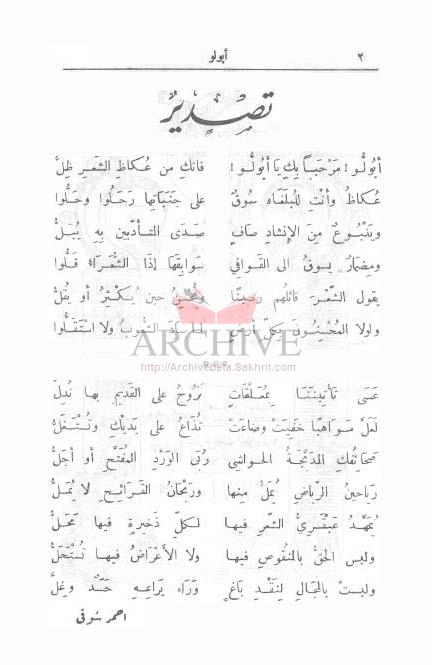 ٢ أبولو
تصدير
أبُولُّو! مَرْحَبًا بِكِ يَا أبُولُّو! فانكِ من عُكاظِ الشعرِ ظِلُّ
عكاظُ وأنتِ للبلغاءِ سوقٌ على جَنَباتِها رَحَلُوا وحَلُّوا
وينبوعٌ مِنَ الإنشادِ صافٍ صَدَى المتأدِّبين بِهِ يُبَلُّ
ومِضمارٌ يسوقُ الى القوافي سوابِقَها إذَا الشُّعَرَاءُ قَلُّوا
يقول الشِّعْرَ قائلُهم رصينًا ويُحْسِنُ حين يُكْثِرُ أو يُقِلُّ
ولولا المُحْسِنُونَ بِكلِّ أرضٍ لما سادَ الشُّعوبُ ولا استَقَلُّوا
ARCHIVE
http://Archivebeta.Sakhrit.com
عَسَى تَأتِينَنَا بِمُعَلَّقَاتٍ نَرُوحُ على القَدِيمِ بِها نُدِلُّ
لعلَّ مَوَاهِبًا خَفِيَتْ وضاعَتْ تُذَاعُ على يَدَيْكِ وتُسْتَغَلُّ
صحائفُكِ المدبَّجةُ الحواشِي رُبَى الوَرْدِ المُفَتَّحِ أو أجَلُّ
رياحينُ الرِّياضِ يُمَلُّ مِنها ورَيْحَانُ القَرائِحِ لا يُمَلُّ
يُمَهِّدُ عَبْقَرِيُّ الشِّعرِ فيها لكلِّ ذَخيرةٍ فيها مَحَلُّ
وليس الحقُّ بالمنقوصِ فيها ولا الأعْرَاضُ فيها تُسْتَحَلُّ
وليستْ بالمجالِ لِنَقْدِ باغٍ وَرَاءَ يَرَاعِهِ حَسَدٌ وغِلُّ
احمد شوقي